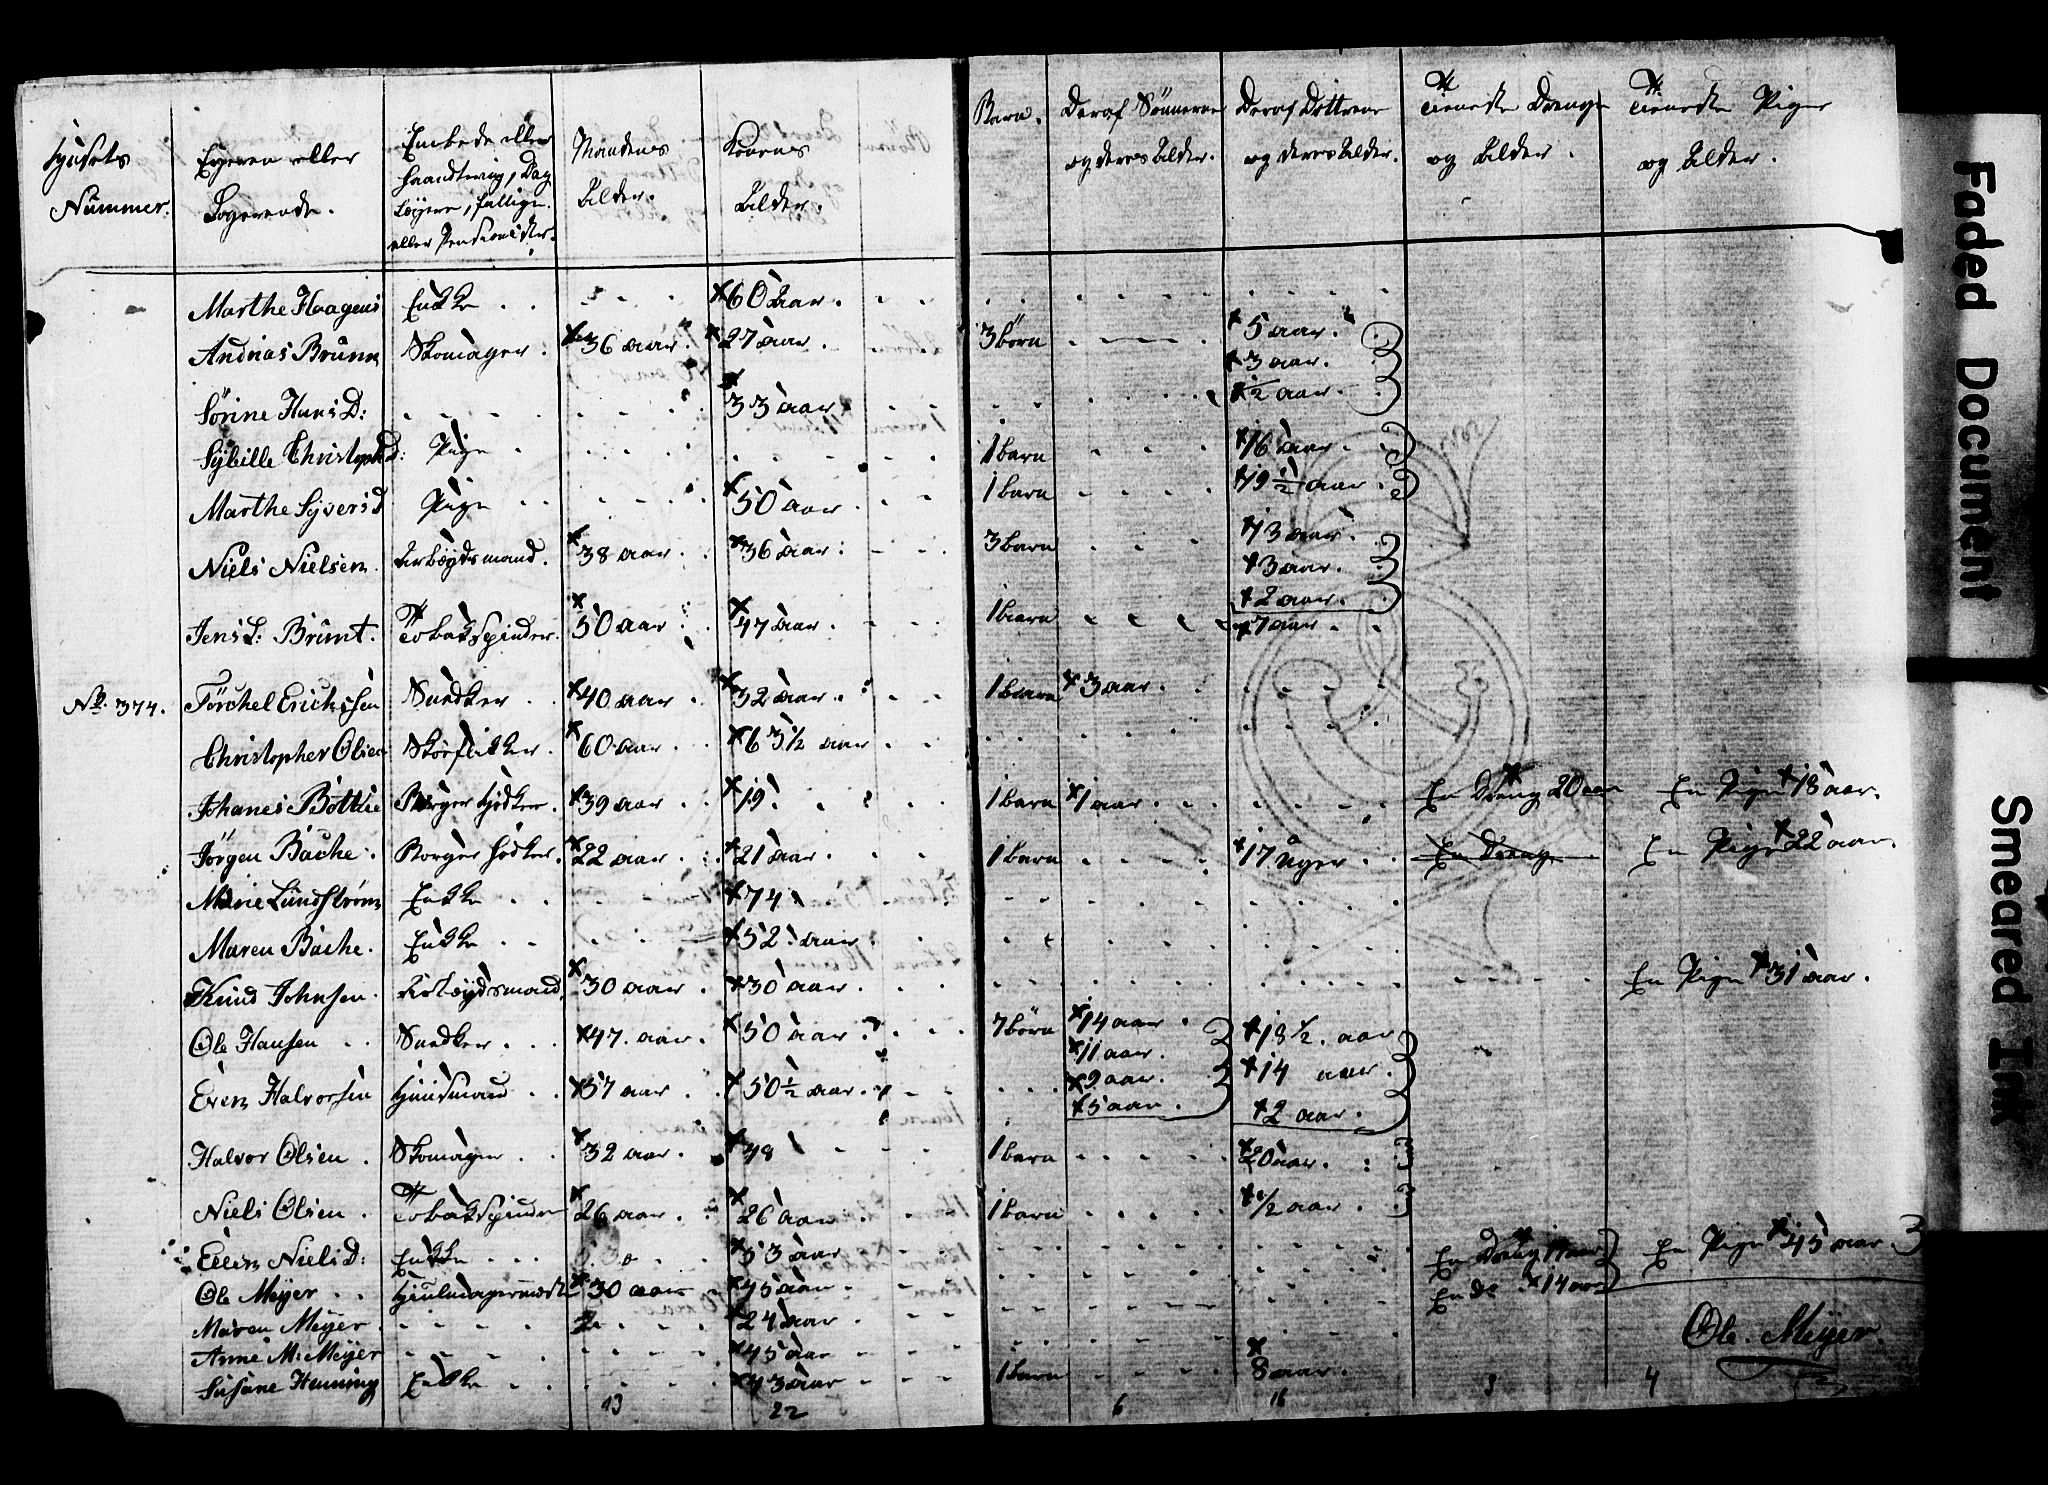 Husets Nummer.
Eyeren eller Logerende.
Embede eller Haandtering, Dag Løyere, fattige eller Pensionister.
Mandens Alder.
Konens Alder.
Barn.
Deraf Sönnerne og deres Alder.
Deraf Döttrene og deres Alder.
Tieneste Drenge og Alder.
Tieneste Piger og Alder.
Marthe Haagens Enkke . . × 60 aar.
Andrias Brunn Skomager. × 36 aar. × 27 aar. 3 börn × 5 aar.
× 3 aar.
× ½ aar.
Sörine Hans D: × 33 aar
Sÿbille Christoph D: Pige 1 barn × 16 aar.
Marthe Syvers D Pige × 50 aar. 1 barn × 19 ½ aar.
Niels Nielsen. Arbeÿdsmand. × 38 aar. × 36 aar. 3 barn × 13 aar.
× 3 aar.
× 2 aar.
Jens L: Brunt. Tobakspinder. × 50 aar × 47 aar. 1 barn × 7 aar.
No. 374. Törchel Erichsen Snedker × 40 aar × 32 aar. 1 barn × 3 aar.
Christopher Olsen Skoeflikker. × 60 aar. × 63½ aar
Johanes Böttke Borger Hödker. × 39 aar × 19. 1 barn × 1 aar. En Dreng × 20 aar En Pige × 18 aar.
Jörgen Bache. Borger Hödker. × 22 aar. × 21 aar. 1 barn × 17 Uger. En Dreng En Pige × 22 aar.
Marie Lundström Enkke × 74
Maren Bache. Enkke × 52 aar
Knud Johnsen. Arbeÿdsmand. × 30 aar. × 30 aar. En Pige × 31 aar.
Ole Hansen Snedker. × 47. aar. × 50 aar. 7 börn × 14 aar. × 18 ½. aar
× 11 aar. × 14 aar.
Even Halvorsen Huusmand × 57 aar × 50 ½ aar. × 9 aar.
× 5 aar. × 2 aar.
Halvor Olsen. Skomager × 32 aar. × 48 1 barn × 20 aar.
Niels Olsen. Tobakspinder × 26 aar. × 26 aar. 1 barn × ½ aar.
Ellen Niels D: Enkke × 53 aar En Dreng aar En Pige × 45 aar.
Ole Meÿer Hiulmagermester × 30 aar × 45 aar. En do × 14 aar
Maren Meÿer. × 24 aar. Ole. Meÿer.
Anne M. Meÿer × 45 aar
Susane Henning Enkke × 43 aar 1 barn × 8 aar.
13 22 6 16 3 4
Faded Document
Smeared Ink